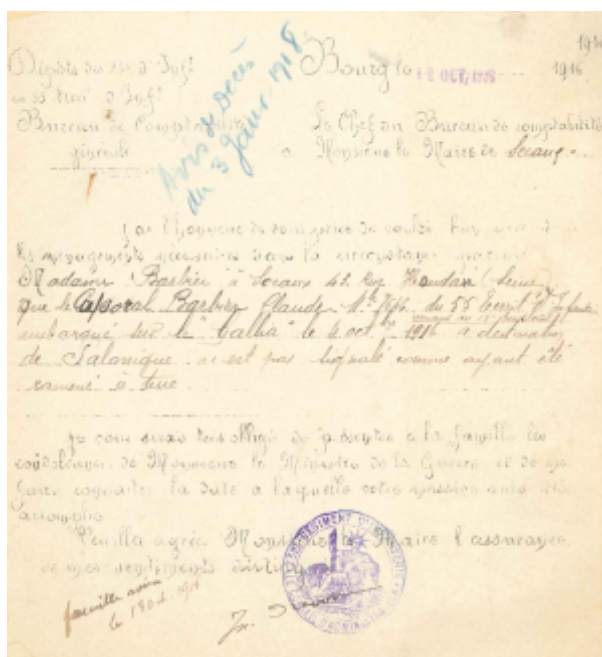 1916
Bourg le 12 OCT. 1916 1916
Dépôts des
Bureau de Comptabilité
générale
Avis de Décès
du 3 Janv. 1918.
Le Chef du Bureau de comptabilité
à Monsieur le Maire de Sceaux
J'ai l'honneur de vous prier de vouloir bien
les ménagements nécessaires dans la circonstance
Madame Barbier à Sceaux 42 Houdan (Seine)
que le Caporal Barbier Claude du 55 Territ.
embarqué sur le "Gallia" le 4 oct. 1916 à destination
de Salonique n'est pas signalé comme ayant été
ramené à terre
Je vous serais très obligé de présenter à la famille les
condoléances de Monsieur le Ministre de la Guerre et de me
faire connaître la date à laquelle votre mission aura été
accomplie
Veuillez agréer Monsieur le Maire l'assurance
de mes sentiments
famille avisée
REGIMENT